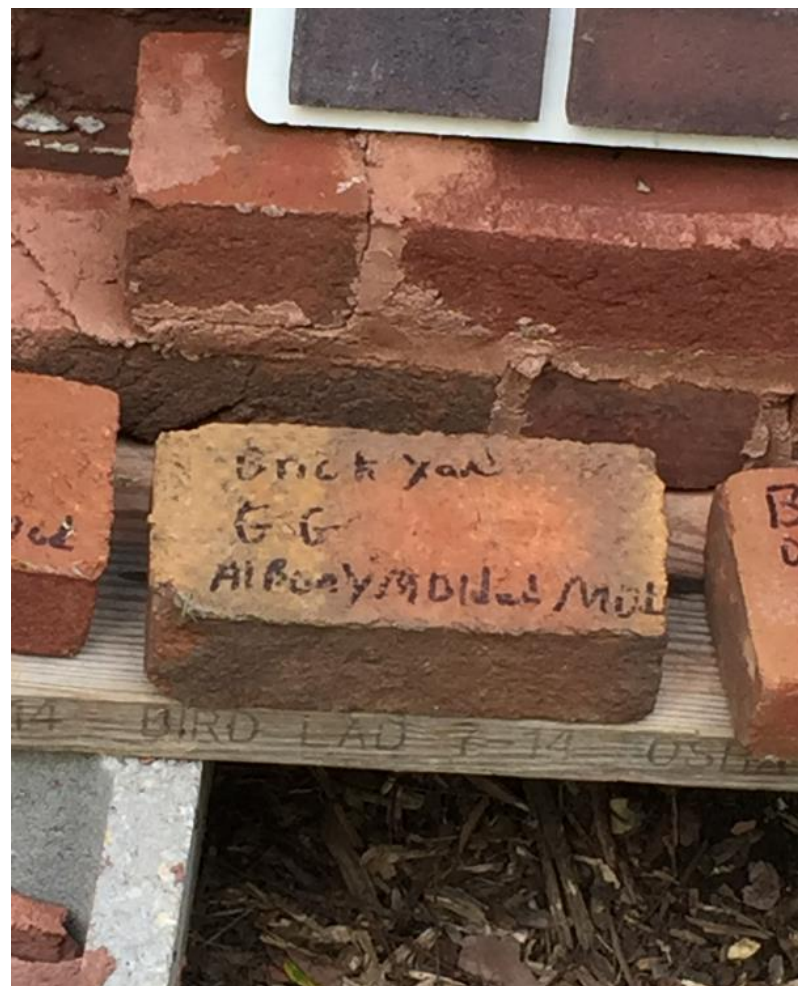 Brick yard
G G
Albany Molded / Mod
B
14 BIRD LAD 7-14 OSHA